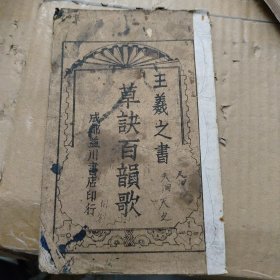 王羲之書
草訣百韻歌
成都益川書店印行